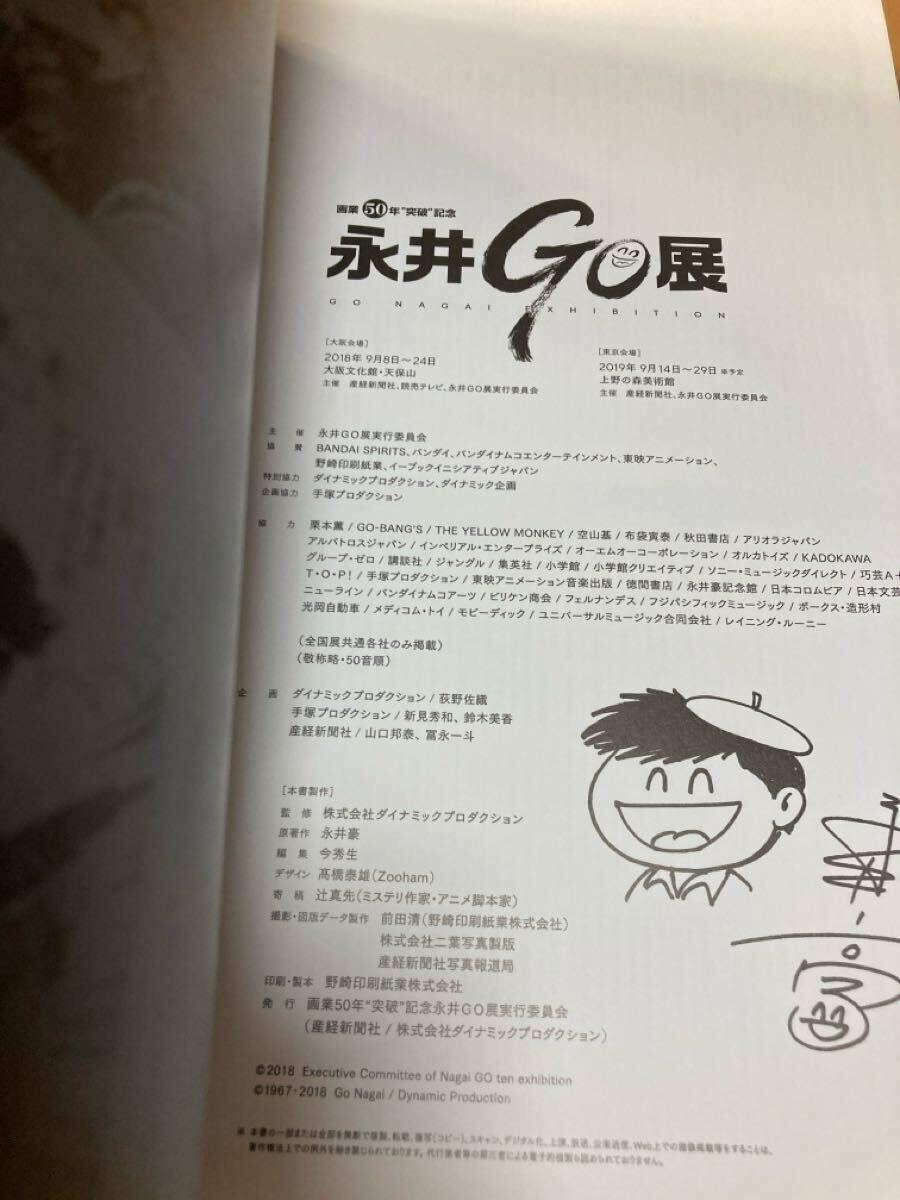 画業50年“突破”記念
永井GO展
GO NAGAI EXHIBITION
［大阪会場］
2018年 9月8日〜24日
大阪文化館・天保山
主催 産経新聞社、読売テレビ、永井GO展実行委員会
［東京会場］
2019年 9月14日〜29日 ※予定
上野の森美術館
主催 産経新聞社、永井GO展実行委員会
主催 永井GO展実行委員会
協賛 BANDAI SPIRITS、バンダイ、バンダイナムコエンターテインメント、東映アニメーション、
野崎印刷紙業、イーブックイニシアティブジャパン
特別協力 ダイナミックプロダクション、ダイナミック企画
企画協力 手塚プロダクション
協力 栗本薫 / GO-BANG'S / THE YELLOW MONKEY / 空山基 / 布袋寅泰 / 秋田書店 / アリオラジャパン
アルバトロスジャパン / インペリアル・エンタープライズ / オーエムオーコーポレーション / オルカトイズ / KADOKAWA
グループ・ゼロ / 講談社 / ジャングル / 集英社 / 小学館 / 小学館クリエイティブ / ソニー・ミュージックダイレクト / 巧芸A+
T・O・P! / 手塚プロダクション / 東映アニメーション音楽出版 / 徳間書店 / 永井豪記念館 / 日本コロムビア / 日本文芸
ニューライン / バンダイナムコアーツ / ビリケン商会 / フェルナンデス / フジパシフィックミュージック / ボークス・造形村
光岡自動車 / メディコム・トイ / モビーディック / ユニバーサルミュージック合同会社 / レイニング・ルーニー
（全国展共通各社のみ掲載）
（敬称略・50音順）
企画 ダイナミックプロダクション / 荻野佐織
手塚プロダクション / 新見秀和、鈴木美香
産経新聞社 / 山口邦泰、冨永一斗
［本書製作］
監修 株式会社ダイナミックプロダクション
原著作 永井豪
編集 今秀生
デザイン 髙橋泰雄（Zooham）
寄稿 辻真先（ミステリ作家・アニメ脚本家）
撮影・図版データ製作 前田清（野崎印刷紙業株式会社）
株式会社二葉写真製版
産経新聞社写真報道局
印刷・製本 野崎印刷紙業株式会社
発行 画業50年“突破”記念永井GO展実行委員会
（産経新聞社 / 株式会社ダイナミックプロダクション）
©2018 Executive Committee of Nagai GO ten exhibition
©1967-2018 Go Nagai / Dynamic Production
※ 本書の一部または全部を無断で複製、転載、複写（コピー）、スキャン、デジタル化、上演、放送、公衆送信、Web上での画像掲載等をすることは、
著作権法上での例外を除き禁じられております。代行業者等の第三者による電子的複製も認められておりません。